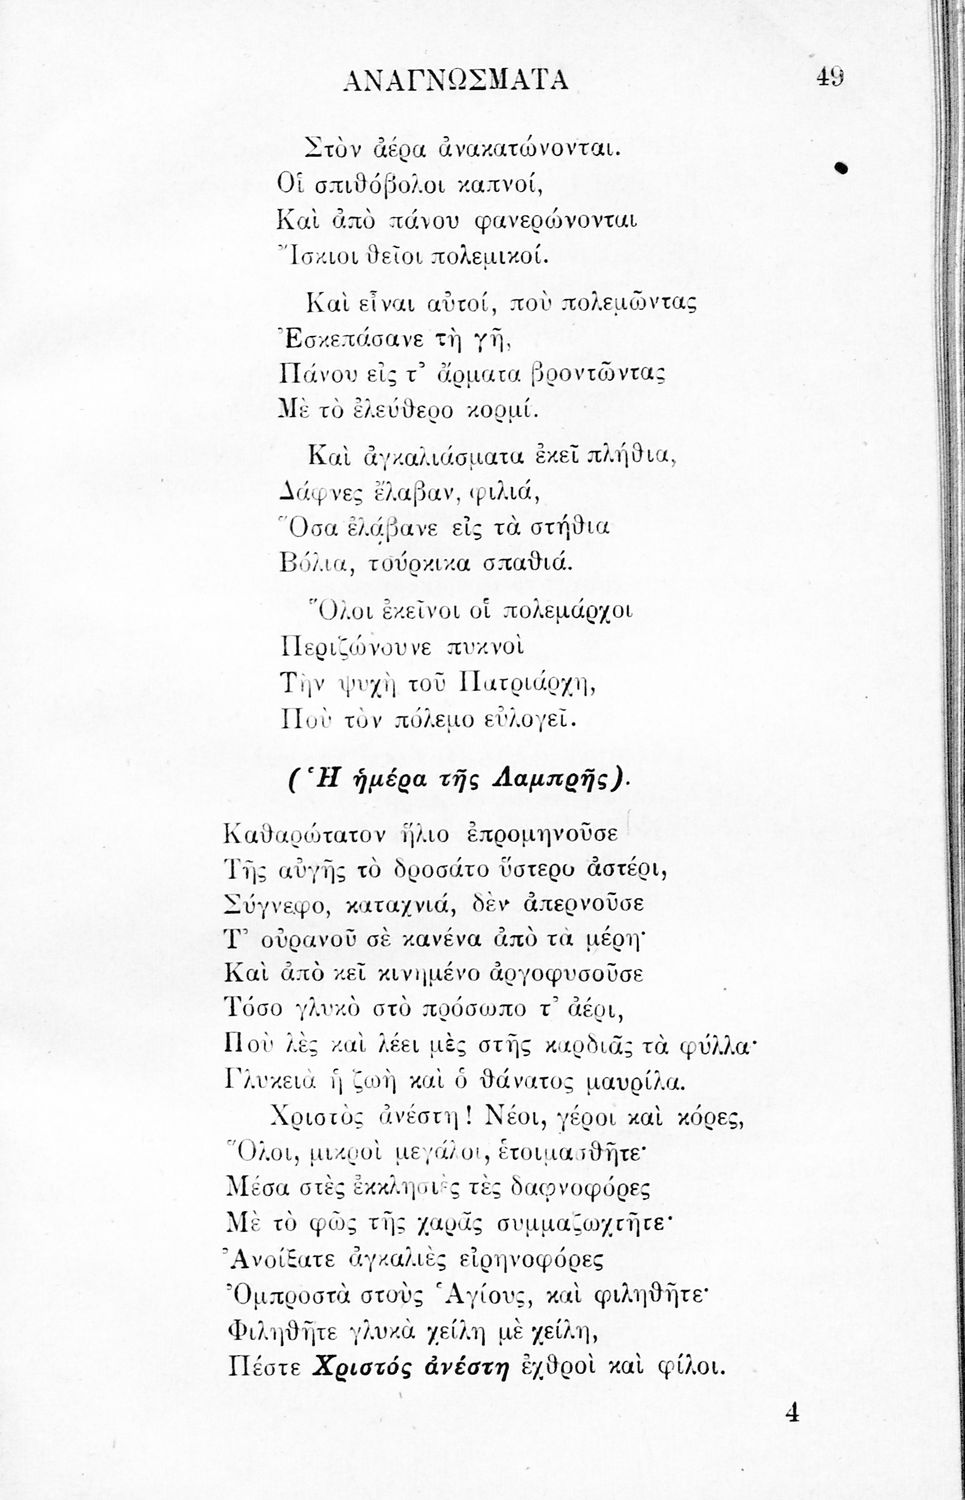 ΑΝΑΓΝΩΣΜΑΤΑ 49
Στὸν ἀέρα ἀνακατώνονται.
Οἱ σπιθόβολοι καπνοί,
Καὶ ἀπὸ πάνου φανερώνονται
Ἴσκιοι θεῖοι πολεμικοί.
Καὶ εἶναι αὐτοί, ποὺ πολεμῶντας
Ἐσκεπάσανε τὴ γῆ,
Πάνου εἰς τ' ἄρματα βροντῶντας
Μὲ τὸ ἐλεύθερο κορμί.
Καὶ ἀγκαλιάσματα ἐκεῖ πλήθια,
Δάφνες ἔλαβαν, φιλιά,
Ὅσα ἐλάβανε εἰς τὰ στήθια
Βόλια, τούρκικα σπαθιά.
Ὅλοι ἐκεῖνοι οἱ πολεμάρχοι
Περιζώνουνε πυκνοὶ
Τὴν ψυχὴ τοῦ Πατριάρχη,
Ποὺ τὸν πόλεμο εὐλογεῖ.
(Ἡ ἡμέρα τῆς Λαμπρῆς).
Καθαρώτατον ἥλιο ἐπρομηνοῦσε
Τῆς αὐγῆς τὸ δροσάτο ὕστερο ἀστέρι,
Σύγνεφο, καταχνιά, δὲν ἀπερνοῦσε
Τ' οὐρανοῦ σὲ κανένα ἀπὸ τὰ μέρη·
Καὶ ἀπὸ κεῖ κινημένο ἀργοφυσοῦσε
Τόσο γλυκὸ στὸ πρόσωπο τ' ἀέρι,
Ποὺ λὲς καὶ λέει μὲς στῆς καρδιᾶς τὰ φύλλα·
Γλυκειὰ ἡ ζωὴ καὶ ὁ θάνατος μαυρίλα.
Χριστὸς ἀνέστη! Νέοι, γέροι καὶ κόρες,
Ὅλοι, μικροὶ μεγάλοι, ἑτοιμασθῆτε·
Μέσα στὲς ἐκκλησιὲς τὲς δαφνοφόρες
Μὲ τὸ φῶς τῆς χαρᾶς συμμαζωχτῆτε·
Ἀνοίξατε ἀγκαλιὲς εἰρηνοφόρες
Ὀμπροστὰ στοὺς Ἁγίους, καὶ φιληθῆτε·
Φιληθῆτε γλυκὰ χείλη μὲ χείλη,
Πέστε Χριστός ἀνέστη ἐχθροὶ καὶ φίλοι.
4